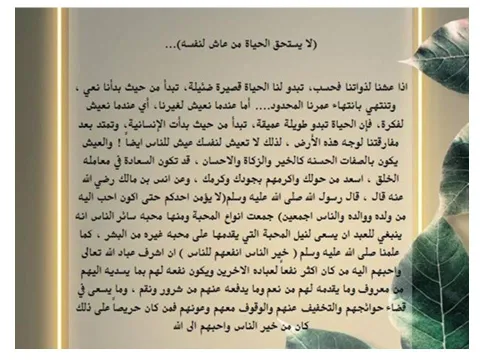 (لا يستحق الحياة من عاش لنفسه)...
اذا عشنا لذواتنا فحسب، تبدو لنا الحياة قصيرة ضئيلة، تبدأ من حيث بدأنا نعي ،
وتنتهي بانتهاء عمرنا المحدود.... أما عندما نعيش لغيرنا، أي عندما نعيش
لفكرة، فإن الحياة تبدو طويلة عميقة، تبدأ من حيث بدأت الإنسانية، وتمتد بعد
مفارقتنا لوجه هذه الأرض ، لذلك لا تعيش لنفسك عيش للناس ايضاً ! والعيش
يكون بالصفات الحسنه كالخير والزكاة والاحسان ، قد تكون السعادة في معامله
الخلق ، اسعد من حولك واكرمهم بجودك وكرمك ، وعن انس بن مالك رضي الله
عنه قال ، قال رسول الله صلى الله عليه وسلم(لا يؤمن احدكم حتى اكون احب اليه
من ولده ووالده والناس اجمعين) جمعت انواع المحبة ومنها محبة سائر الناس انه
ينبغي للعبد ان يسعى لنيل المحبة التي يقدمها على محبه غيره من البشر ، كما
علمنا صلى الله عليه وسلم ( خير الناس انفعهم للناس ) ان اشرف عباد الله تعالى
واحبهم اليه من كان اكثر نفعاً لعباده الاخرين ويكون نفعه لهم بما يسديه اليهم
من معروف وما يقدمه لهم من نعم وما يدفعه عنهم من شرور ونقم ، وما يسعى في
قضاء حوائجهم والتخفيف عنهم والوقوف معهم وعونهم فمن كان حريصاً على ذلك
كان من خير الناس واحبهم الى الله